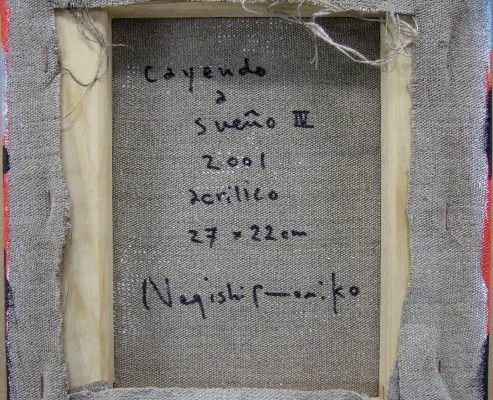 cayendo
a
sueño IV
2001
acrílico
27 × 22cm
Negishi